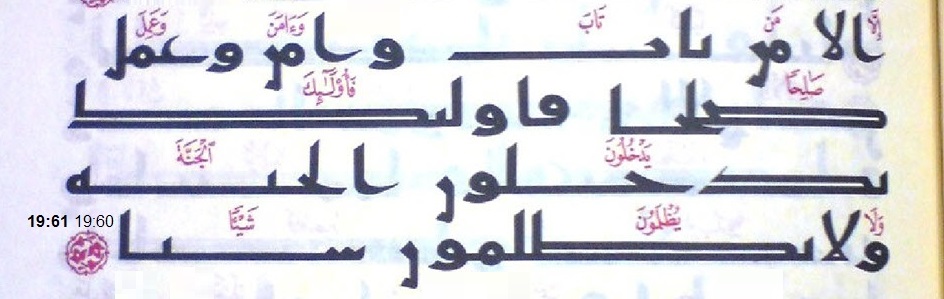 إِلَّا مَن تَابَ وَءَامَنَ وَعَمِلَ
الا من تاب وامن وعمل
صَٰلِحًا فَأُو۟لَٰٓئِكَ
صلحا فاولىك
يَدْخُلُونَ ٱلْجَنَّةَ
يدخلون الجنه
وَلَا يُظْلَمُونَ شَيْـًٔا
ولا يظلمون شيا
19:61 19:60